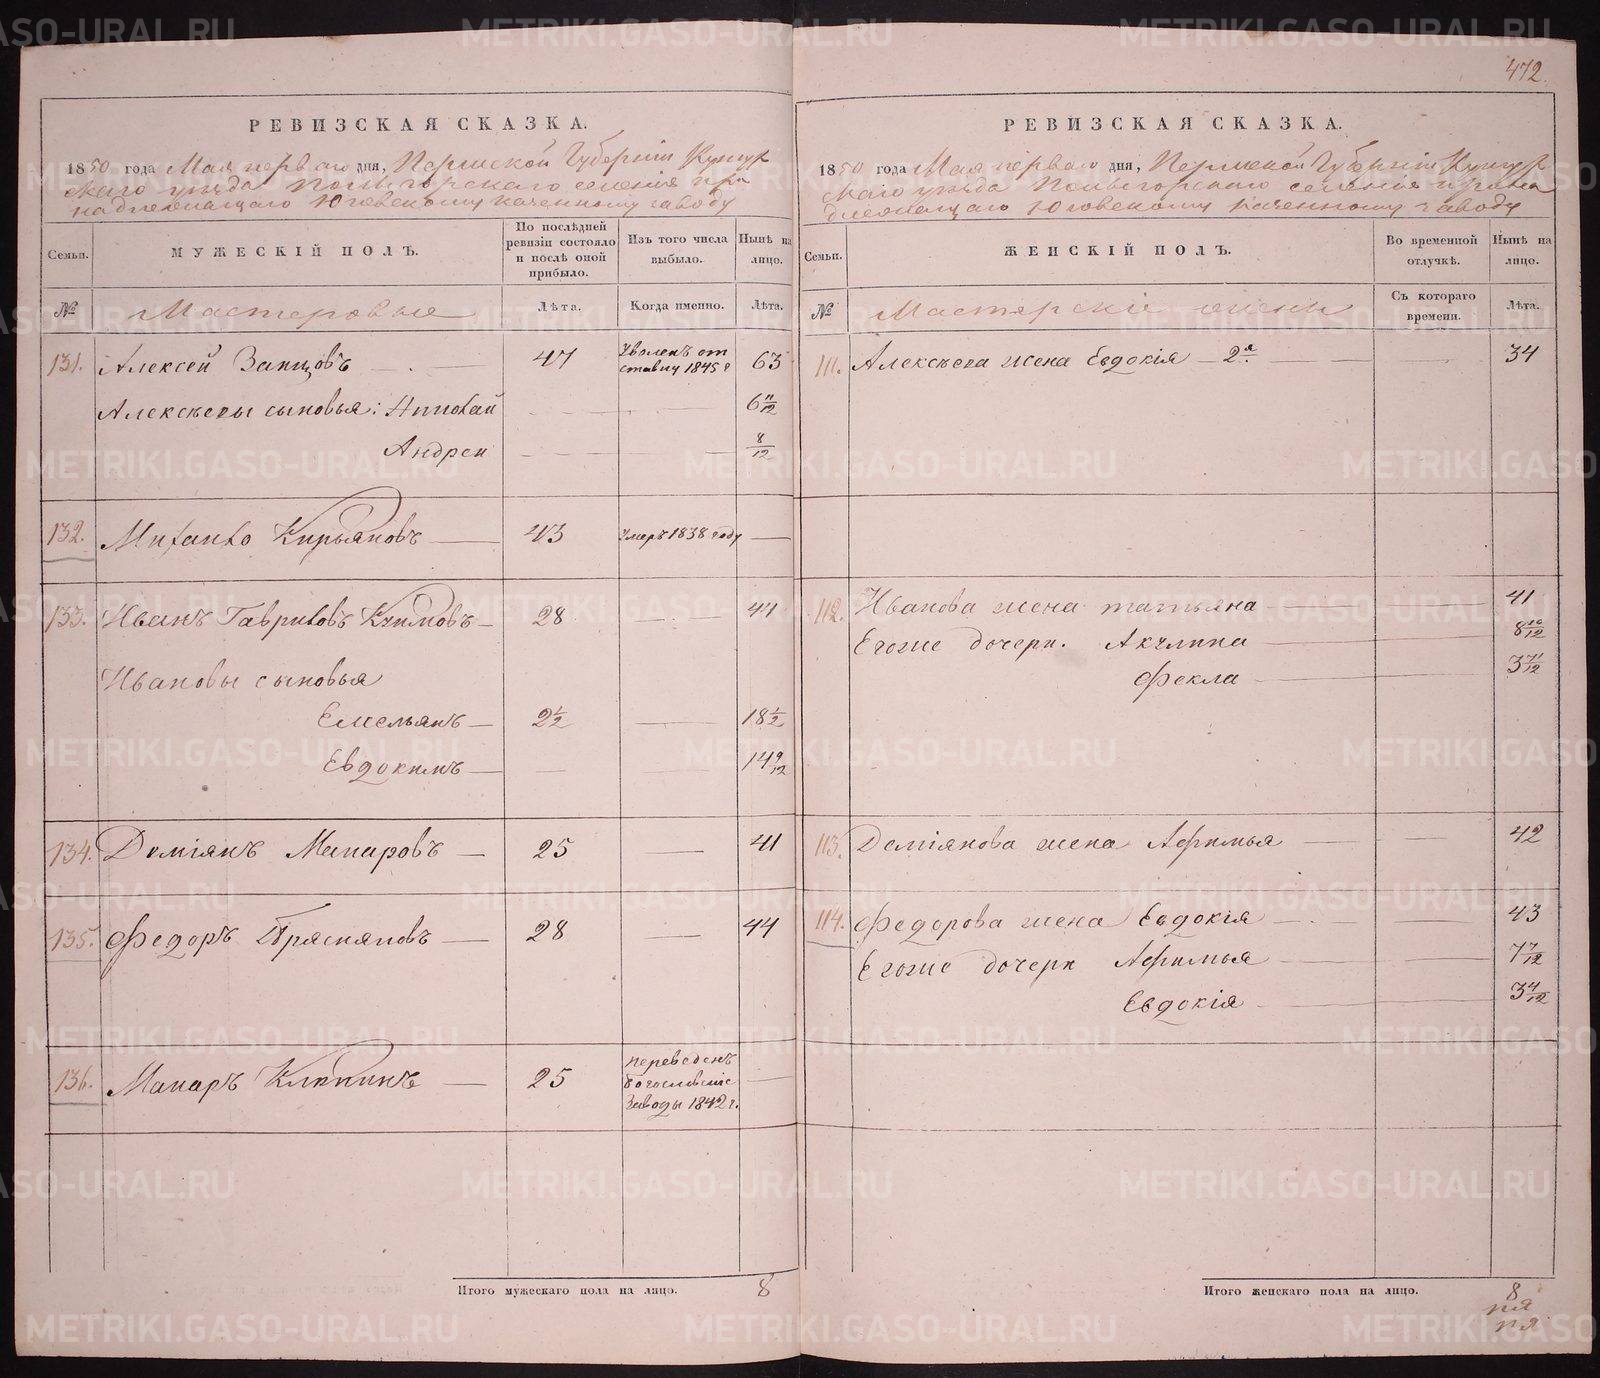 472.
РЕВИЗСКАЯ СКАЗКА.
1850 года Мая перваго дня, Пермской Губерніи Кунгур
скаго уезда селенія при
надлежащаго Юговскому казенному заводу
Семьи.
МУЖЕСКІЙ ПОЛЪ.
По послѣдней ревизіи состояло и послѣ оной прибыло.
Изъ того числа выбыло.
Нынѣ на лицо.
№
Мастеровые
Лѣта.
Когда именно.
Лѣта.
131. Алексей 47 Уволенъ от ставку 1845 г 63
Алексѣевы сыновья: Николай 6 11/12
Андреи 8/12
132. Михайло Кирьяновъ 43 Умеръ 1838 году
133. Иванъ Гавриловъ 28 44
Ивановы сыновья
Емельянъ 2 1/2 18 1/2
Евдокимъ 14 9/12
134. Деміянъ Макаровъ 25 41
135. Федоръ 28 44
136. Макаръ 25 переведенъ Богословскіе Заводы 1842 г.
Итого мужескаго пола на лицо. 8
РЕВИЗСКАЯ СКАЗКА.
1850 года Мая перваго дня, Пермской Губерніи Кунгур
скаго уезда селенія принад
лежащаго Юговскому казенному заводу
Семьи.
ЖЕНСКІЙ ПОЛЪ.
Во временной отлучкѣ.
Нынѣ на лицо.
№
Мастерскіе жены
Съ котораго времени.
Лѣта.
111. Алексѣева жена Евдокія 2я 34
112. Иванова жена татьяна 41
Егоже дочери. Акулина 8 10/12
Фекла 3 11/12
113. Деміянова жена Афимья 42
114. Федорова жена Евдокія 43
Егоже дочери Афимья 7 7/12
Евдокія 3 4/12
Итого женскаго пола на лицо. 8
METRIKI.GASO-URAL.RU